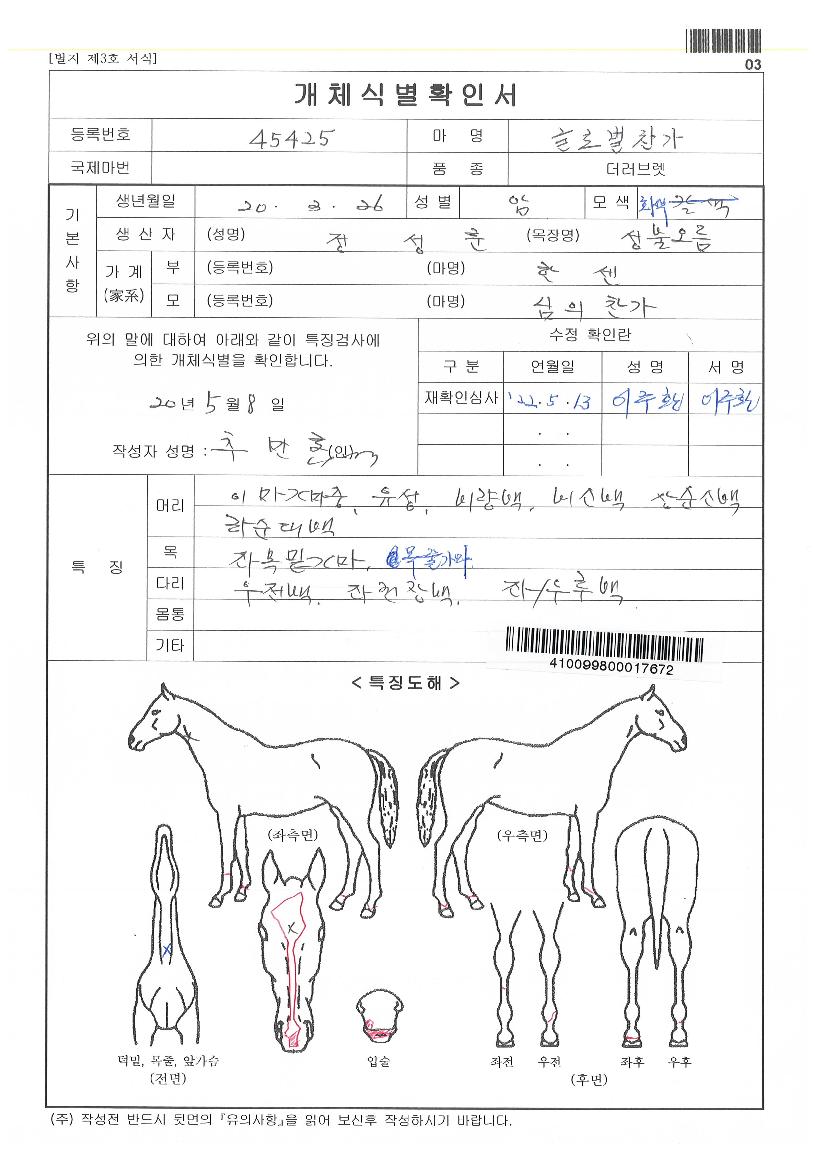 [별지 제3호 서식]
03
개체식별확인서
등록번호 45425 마 명 글로벌찬가
국제마번 품 종 더러브렛
기본사항
생년월일 20. 3. 26 성별 암 모색 회색 갈색
생산자 (성명) 정성훈 (목장명) 성불오름
가계(家系) 부 (등록번호) (마명) 한센
모 (등록번호) (마명) 심의찬가
위의 말에 대하여 아래와 같이 특징검사에
의한 개체식별을 확인합니다.
20년 5월 8일
작성자 성명 : 추만호 (인)
수정 확인란
구분 연월일 성명 서명
재확인심사 '22. 5. 13 이주환 이주환
. .
. .
특 징
머리 이마가마중, 유성, 비량백, 비신백 상순신백
하순대백
목 좌목밑가마, 목줄가마
다리 우전백, 좌전장백, 좌/우후백
몸통
기타
410099800017672
< 특징도해 >
(좌측면) (우측면)
턱밑, 목줄, 앞가슴 (전면)
입술
좌전 우전 좌후 우후
(후면)
(주) 작성전 반드시 뒷면의 『유의사항』을 읽어 보신후 작성하시기 바랍니다.